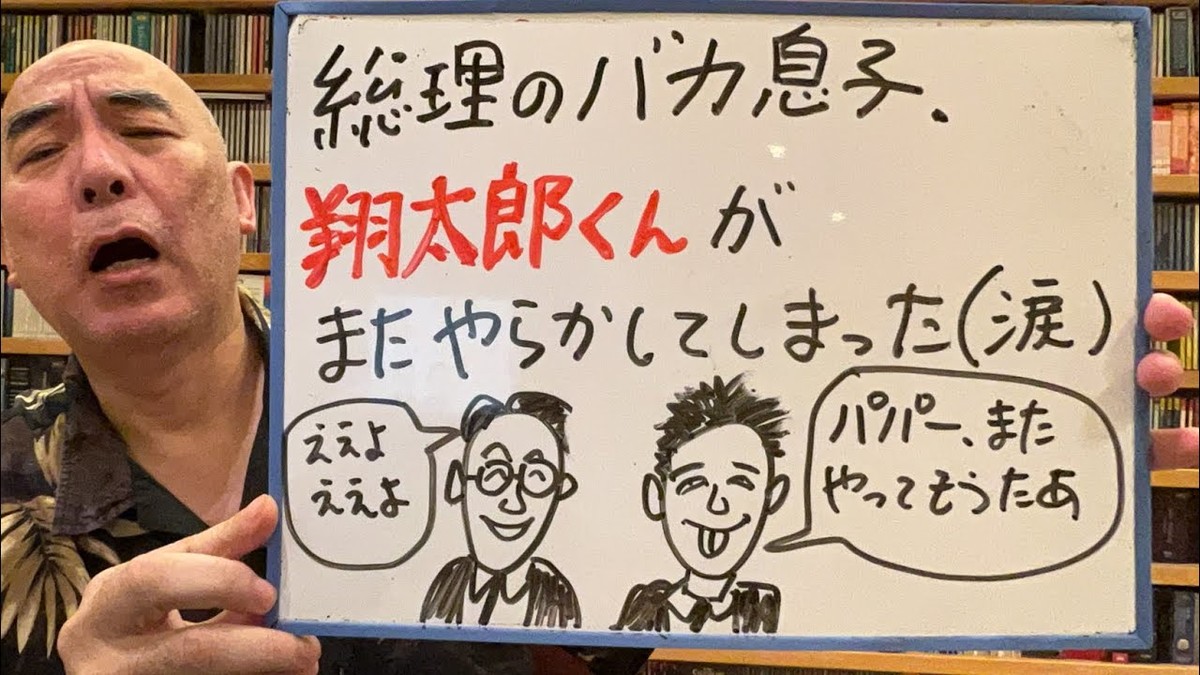 総理のバカ息子、
翔太郎くんが
またやらかしてしまった(涙)
ええよ
ええよ
パパー、また
やってもうたあ